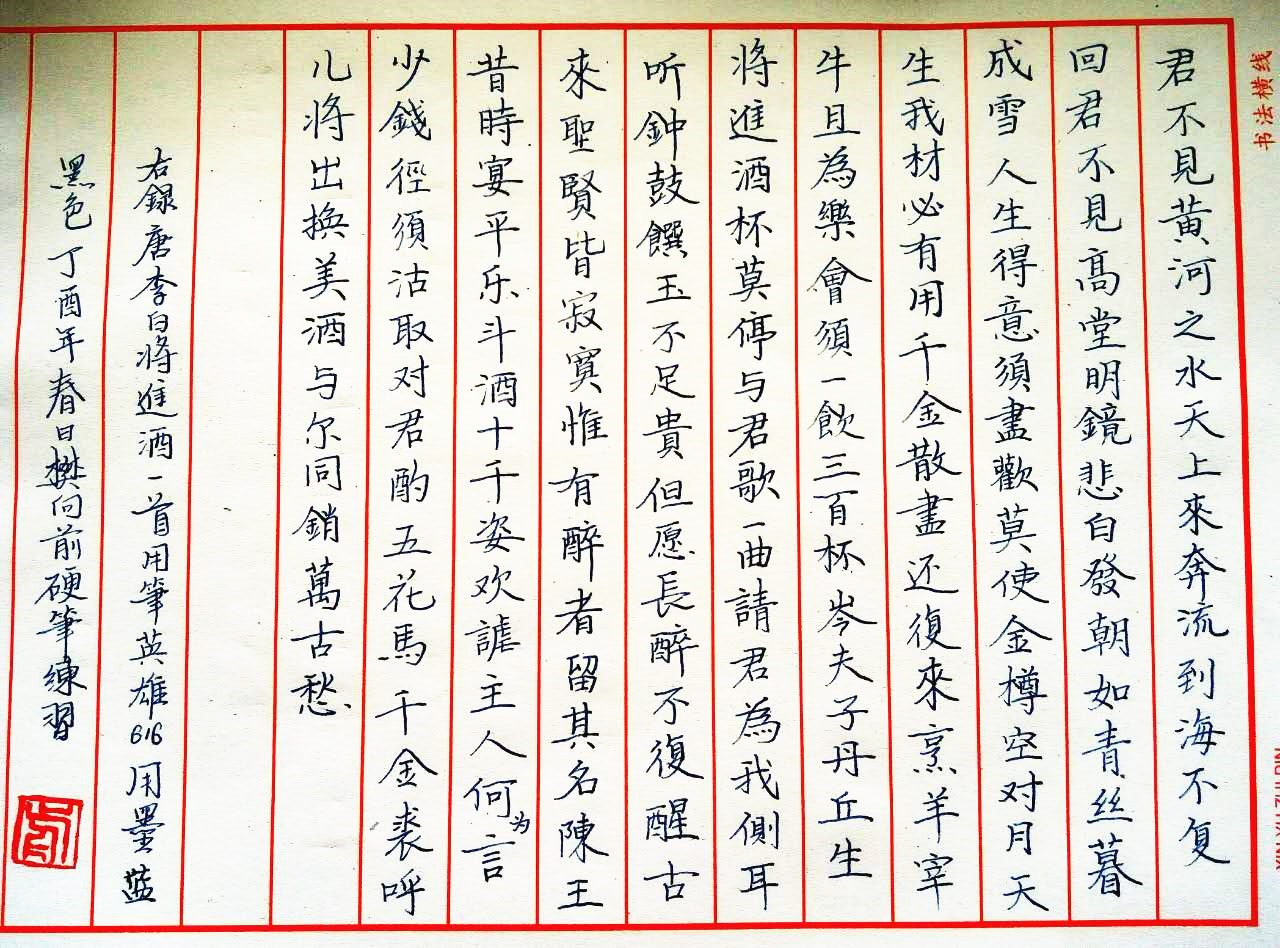 君不見黃河之水天上來奔流到海不复
回君不見高堂明鏡悲白發朝如青丝暮
成雪人生得意須盡歡莫使金樽空对月天
生我材必有用千金散盡还復來烹羊宰
牛且為樂會須一飲三百杯岑夫子丹丘生
将進酒杯莫停与君歌一曲請君為我側耳
听鈡鼓饌玉不足貴但愿長醉不復醒古
來聖賢皆寂寞惟有醉者留其名陳王
昔時宴平乐斗酒十千姿欢謔主人何为言
少錢徑須沽取对君酌五花馬千金裘呼
儿将出換美酒与尔同銷萬古愁
右録唐李白将進酒一首用筆英雄616用墨蓝
黑色丁酉年春日樊向前硬筆練習
书法横线